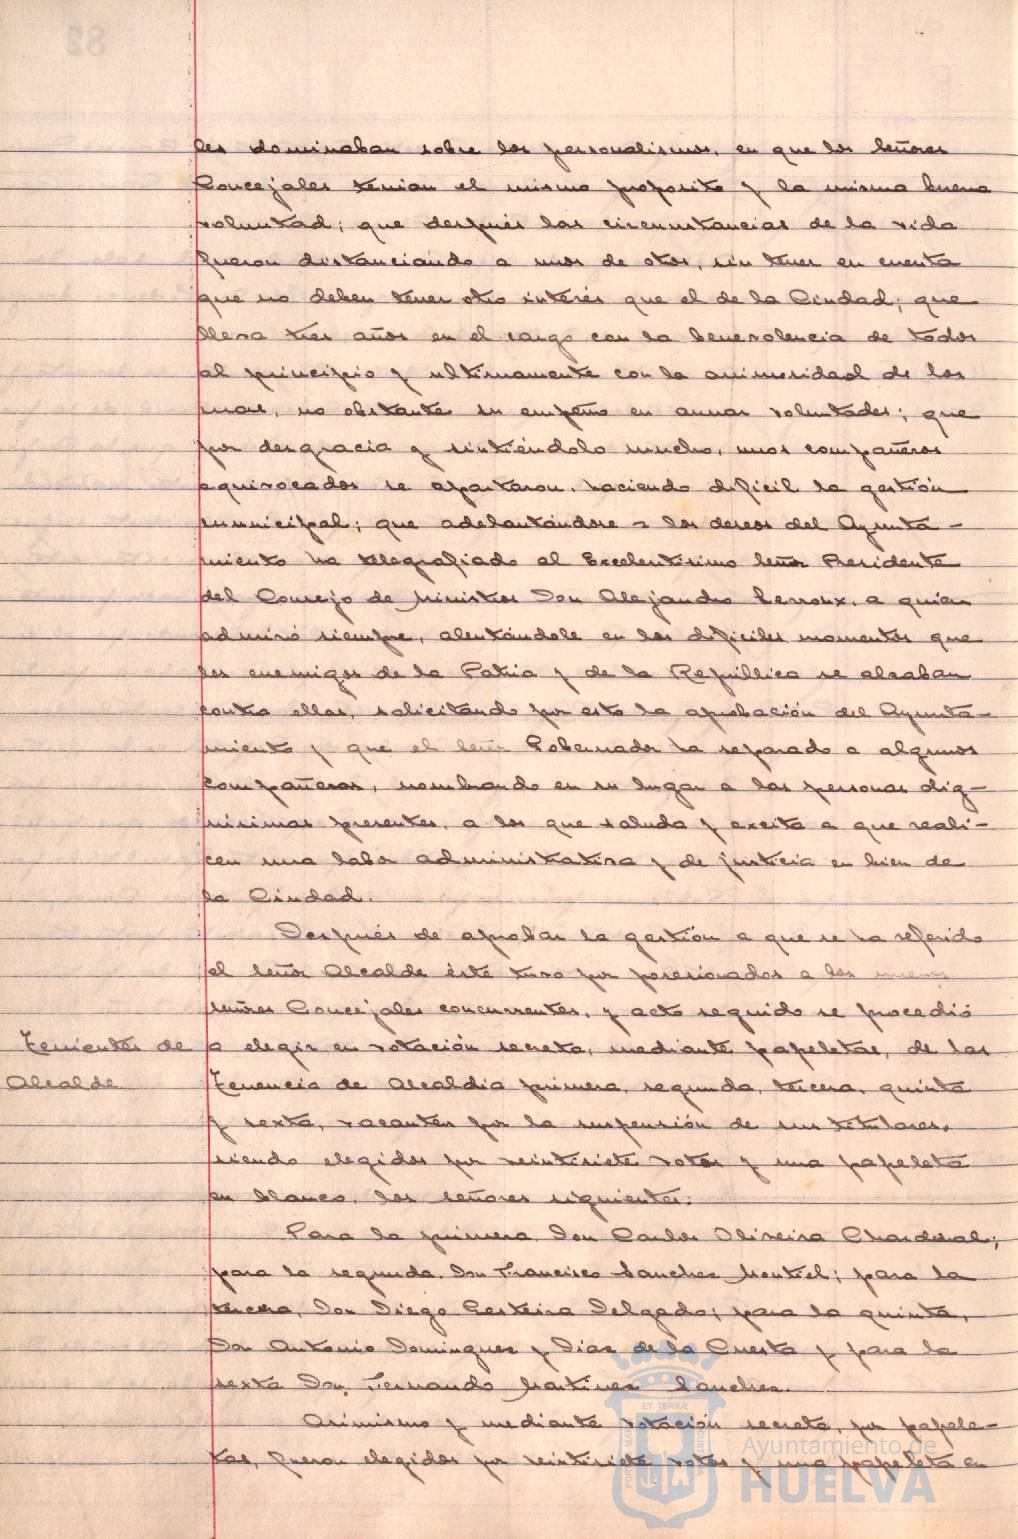 les dominaban sobre los personalismos, en que los señores
Concejales tenian el mismo proposito y la misma buena
voluntad; que después las circunstancias de la vida
fueron distanciando a unos de otros, sin tener en cuenta
que no deben tener otro interés que el de la Ciudad; que
lleva tres años en el cargo con la benevolencia de todos
al principio y ultimamente con la animosidad de los
mas, no obstante su empeño en aunar voluntades; que
por desgracia y sintiéndolo mucho, unos compañeros
equivocados se apartaron, haciendo dificil la gestión
municipal; que adelantándose a los deseos del Ayunta-
miento ha telegrafiado al Excelentisimo Señor Presidente
del Consejo de Ministros Don Alejandro Lerroux, a quien
admiró siempre, alentándole en los dificiles momentos que
los enemigos de la Patria y de la República se alzaban
contra ellas, solicitando por esto la aprobación del Ayunta-
miento y que el Señor Gobernador ha separado a algunos
compañeros, nombrando en su lugar a las personas dig-
nisimas presentes, a los que saluda y excita a que reali-
cen una labor administrativa y de justicia en bien de
la Ciudad.
Después de aprobar la gestión a que se ha referido
el Señor Alcalde éste tuvo por posesionados a los nuevos
señores Concejales concurrentes, y acto seguido se procedió
Tenientes de
Alcalde
a elegir en votación secreta, mediante papeletas, de las
Tenencia de Alcaldia primera, segunda, tercera, quinta
y sexta, vacantes por la suspensión de sus titulares,
siendo elegidos por veintisiete votos y una papeleta
en blanco, los señores siguientes:
Para la primera Don Carlos Oliveira Chardenal;
para la segunda, Don Francisco Sanchez Montiel; para la
tercera, Don Diego Gesteira Delgado; para la quinta,
Don Antonio Dominguez y Diaz de la Cuesta y para la
sexta Don Fernando Martinez Sanchez.
Asimismo y mediante votación secreta, por papele-
tas, fueron elegidos por veintisiete votos y una papeleta en
Ayuntamiento de
HUELVA